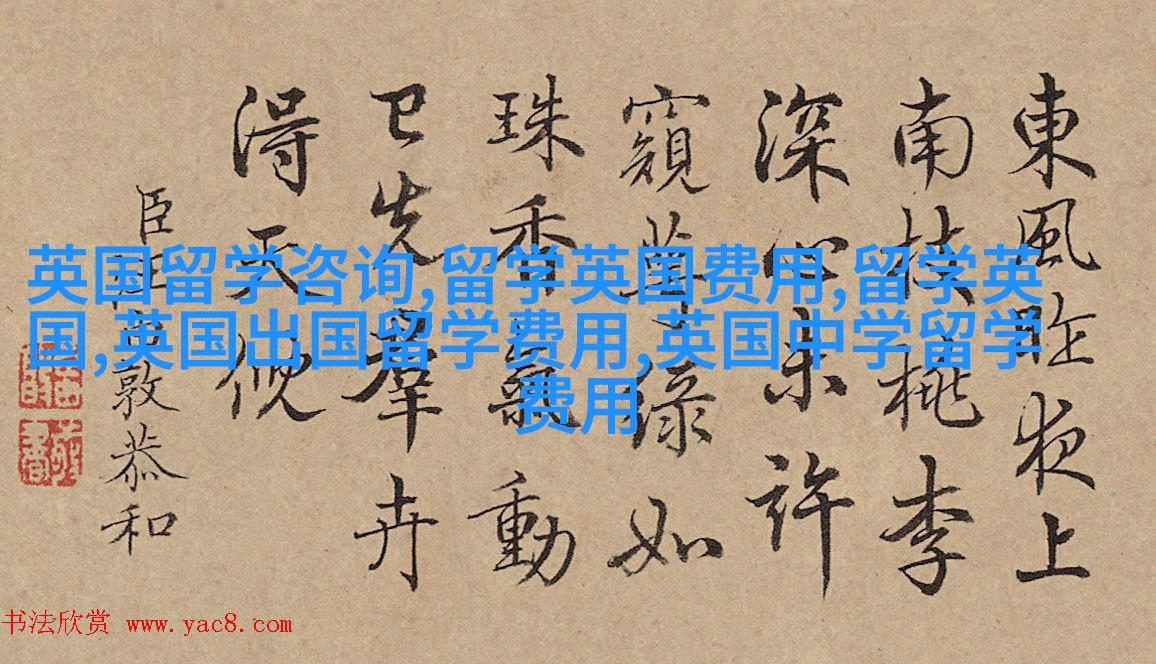 東風昨夜上
南枝桃李
深心未許
窺萼綠如
珠香氣動
已先羣卉
得天倪
臣汪由敦恭和
英国留学咨询,留学英国费用,留学英
国,英国出国留学费用,英国中学留学
费用
书法欣赏 www.yac8.com